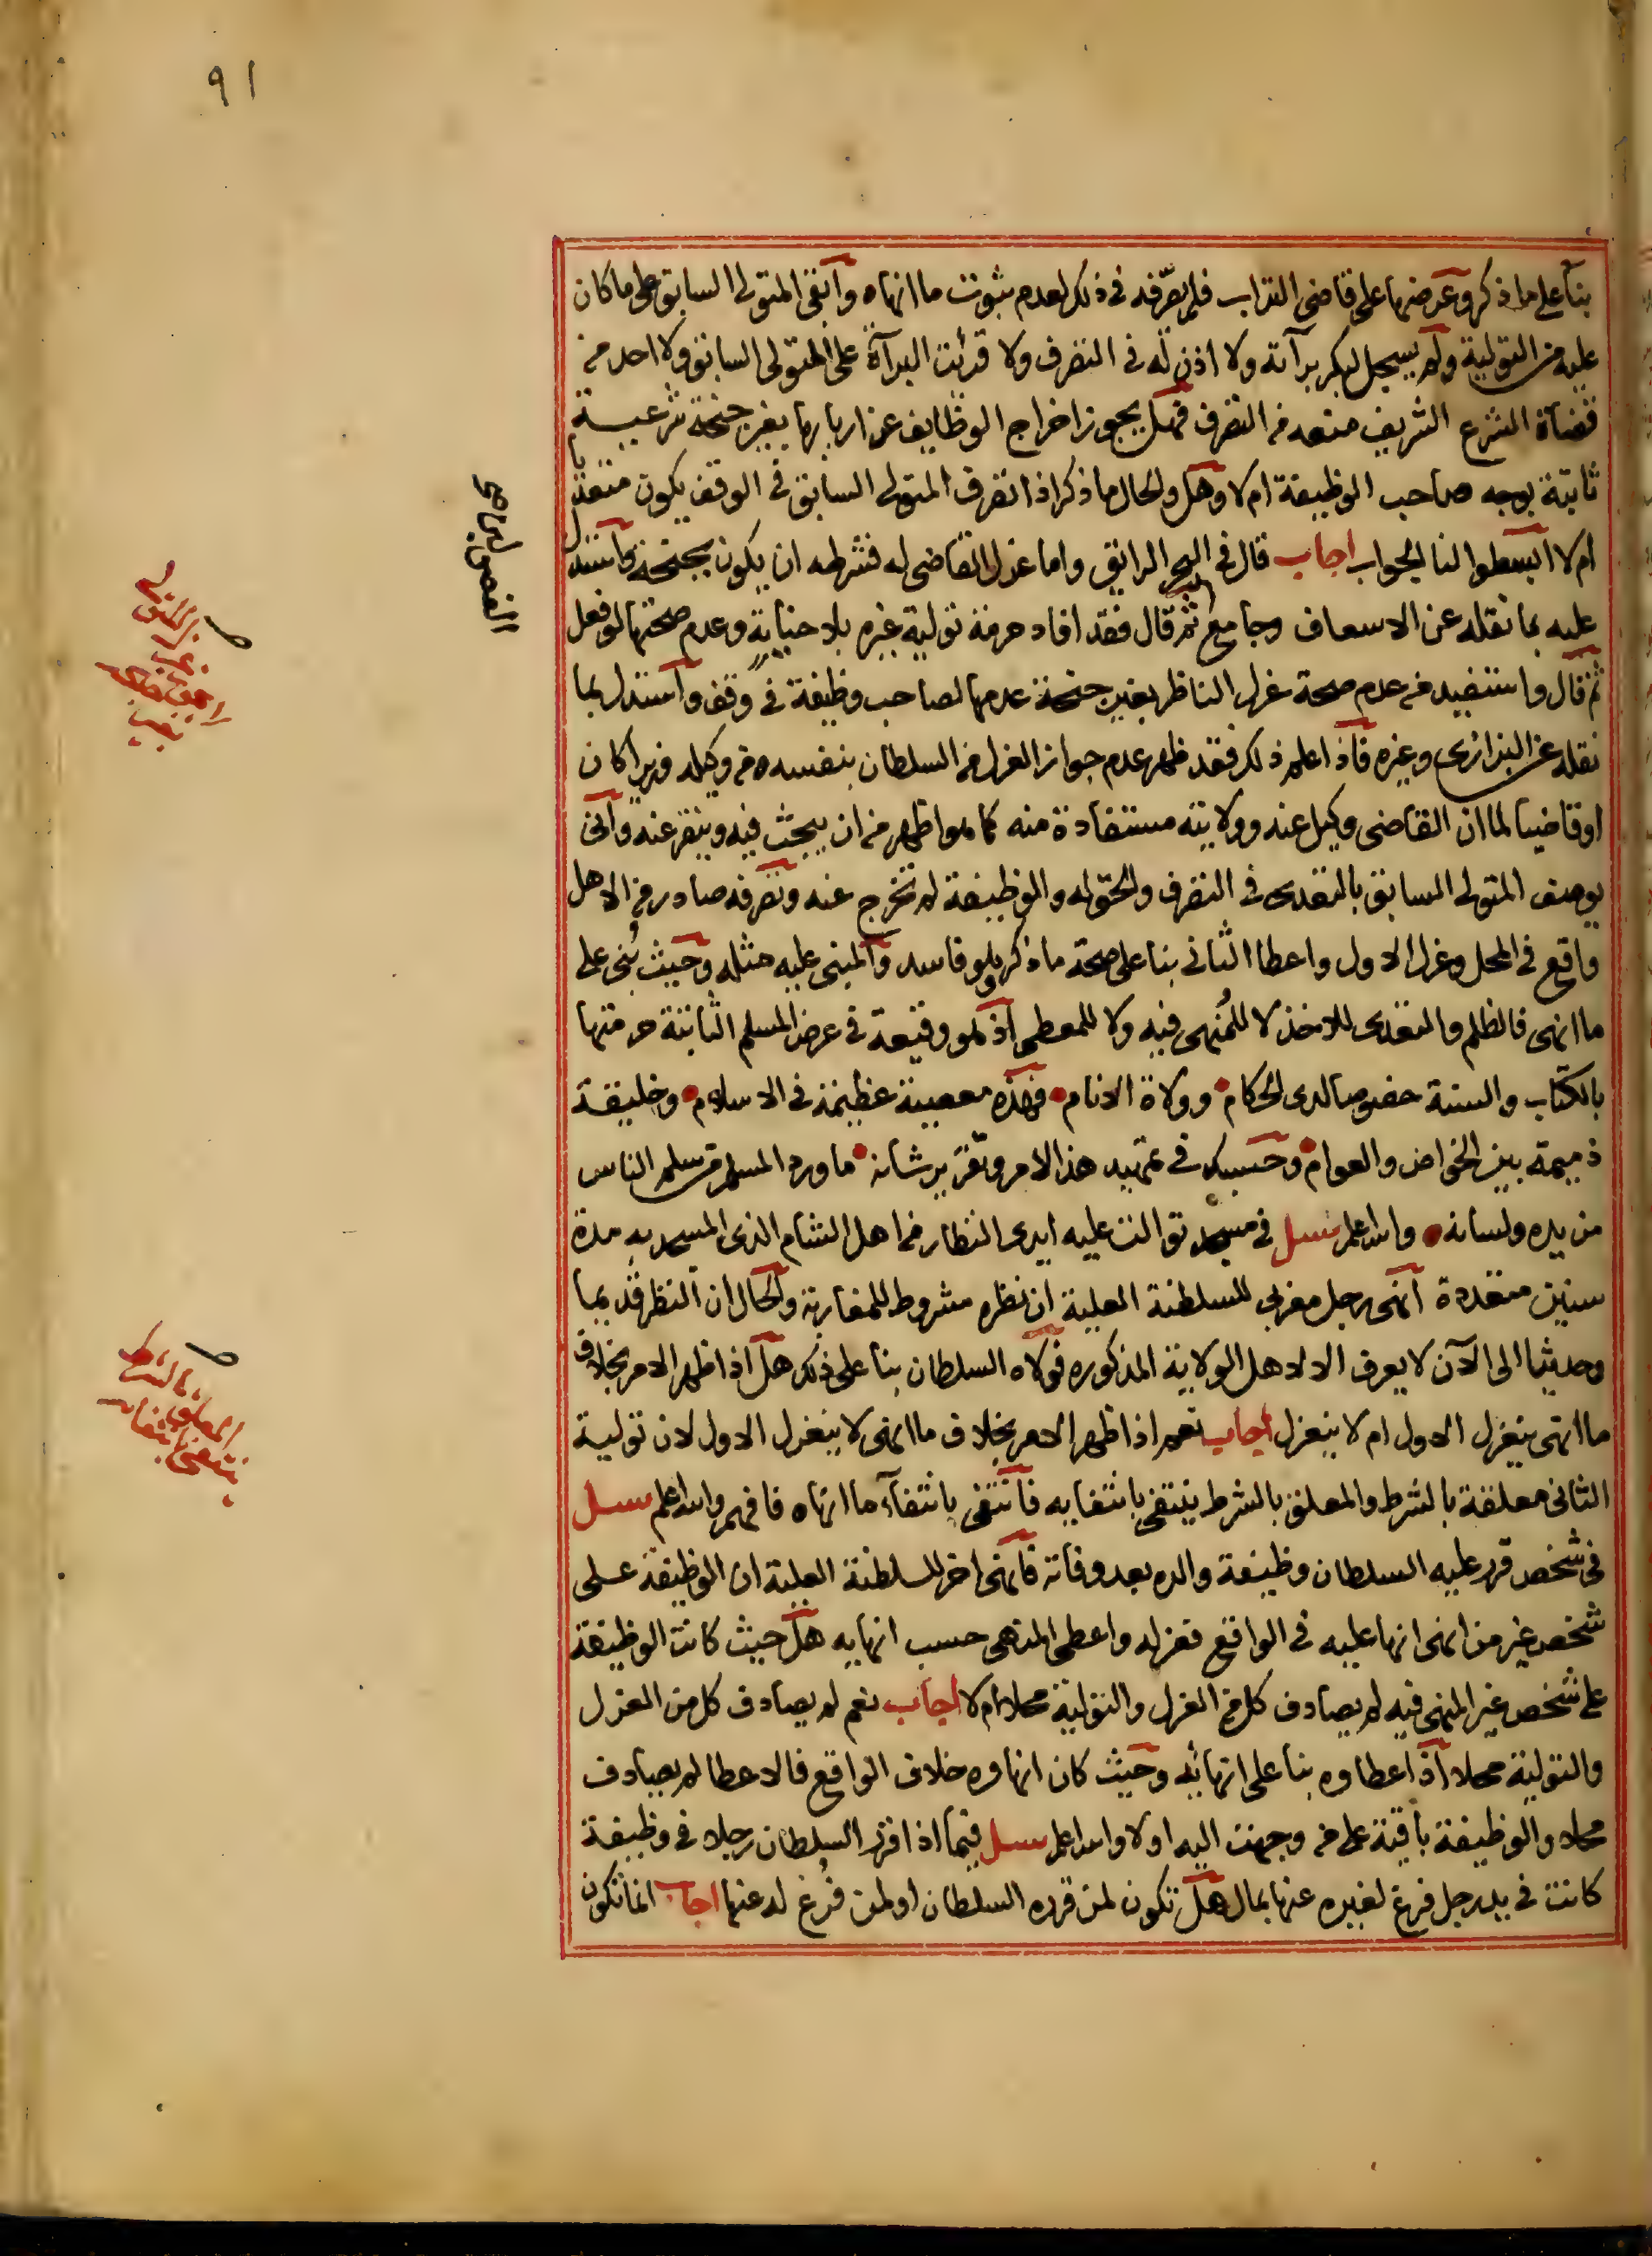 ٩١
بناء على ما ذكر وعرضها على قاضي التراب فلم يصرفه في ذلك لعدم ثبوت ما انهاه وأبقى المتولى السابق على ما كان
عليه من التولية ولم يسجل لبكر برآته ولا اذن له في التصرف ولا قرئت البرآة على المتولى السابق ولا احد من
قضاة الشرع الشريف منعه من التصرف فهل يجوز اخراج الوظايف عن اربابها بغير جنحة شرعية
ثابتة بوجه صاحب الوظيفة ام لا وهل والحال ما ذكر اذا تصرف المتولى السابق في الوقف يكون متعديا
ام لا ابسطوا لنا الجواب اجاب قال في البحر الرايق واما عزل القاضى له فشرطه ان يكون بجنحة واستدل
عليه بما نقله عن الاسعاف وجامع ثم قال فقد افاد حرمة تولية غيره بلا خيانة وعدم صحتها لو فعل
ثم قال واستفيد من عدم صحة عزل الناظر بغير جنحة عدمها لصاحب وظيفة في وقف واستدل بما
نقله عن البزازى وغيره فاذا علم ذلك فقد ظهر عدم جواز العزل من السلطان بنفسه ومن وكيله وزيرا كان
او قاضيا لما ان القاضى وكيل عنه وولايته مستفادة منه كما هو اظهر من ان يبحث فيه وينقر عنه وأنى
يوصف المتولى السابق بالتعدى في التصرف والحق له والوظيفة لم تخرج عنه وتصرفه صادر من الاهل
واقع في المحل وعزل الاول واعطا الثانى بنا على صحة ما ذكر وهو فاسد والمبنى عليه مثله وحيث بُنى على
ما انهى فالظلم والتعدى للاخذ لا للمُنهى فيه ولا للمعطى اذ هو وقيعة في عرض المسلم الثابتة حرمتها
بالكتاب والسنة خصوصا لدى الحكام وولاة الانام فهذه معصية عظيمة في الاسلام وخليقة
ذميمة بين الخواص والعوام وحسبك في تمهيد هذا الامر وتقرير شانه ما ورد المسلم من سلم الناس
من يده ولسانه والله اعلم سـل في مسجد توالت عليه ايدى النظار من اهل الشام الذى المسجد به مدة
سنين متعددة انهى رجل مغربى للسلطنة العلية ان نظره مشروط للمغاربة والحال ان النظر قديما
وحديثا الى الآن لا يعرف الا لاهل الولاية المذكوره فولاه السلطان بنا على ذلك هل اذا ظهر الامر بخلاف
ما انهى ينعزل الاول ام لا ينعزل اجاب نعم اذا ظهر الامر بخلاف ما انهى لا ينعزل الاول لان تولية
الثانى معلقة بالشرط والمعلق بالشرط ينتفى بانتفايه فانتفى بانتفآء ما انهاه فافهم والله اعلم سـل
في شخص قرر عليه السلطان وظيفة والده بعد وفاته فانهى اخر للسلطنة العلية ان الوظيفة على
شخص غير من انهى انها عليه في الواقع فعزله واعطى المنهى حسب انهايه هل حيث كانت الوظيفة
على شخص غير المنهى فيه لم يصادف كل من العزل والتولية محلا ام لا اجاب نعم لم يصادف كل من العزل
والتولية محلا اذ اعطاوه بنا على انهائه وحيث كان انهاوه خلاف الواقع فالاعطا لم يصادف
محلا والوظيفة باقية على من وجهت اليه اولا والله اعلم سـل فيما اذا قرر السلطان رجلا في وظيفة
كانت في يد رجل فرغ لغيره عنها بمال هل تكون لمن قرره السلطان او لمن فُرغ له عنها اجاب انما تكون
المعلق بالشرط
ينتفى بانتفايه